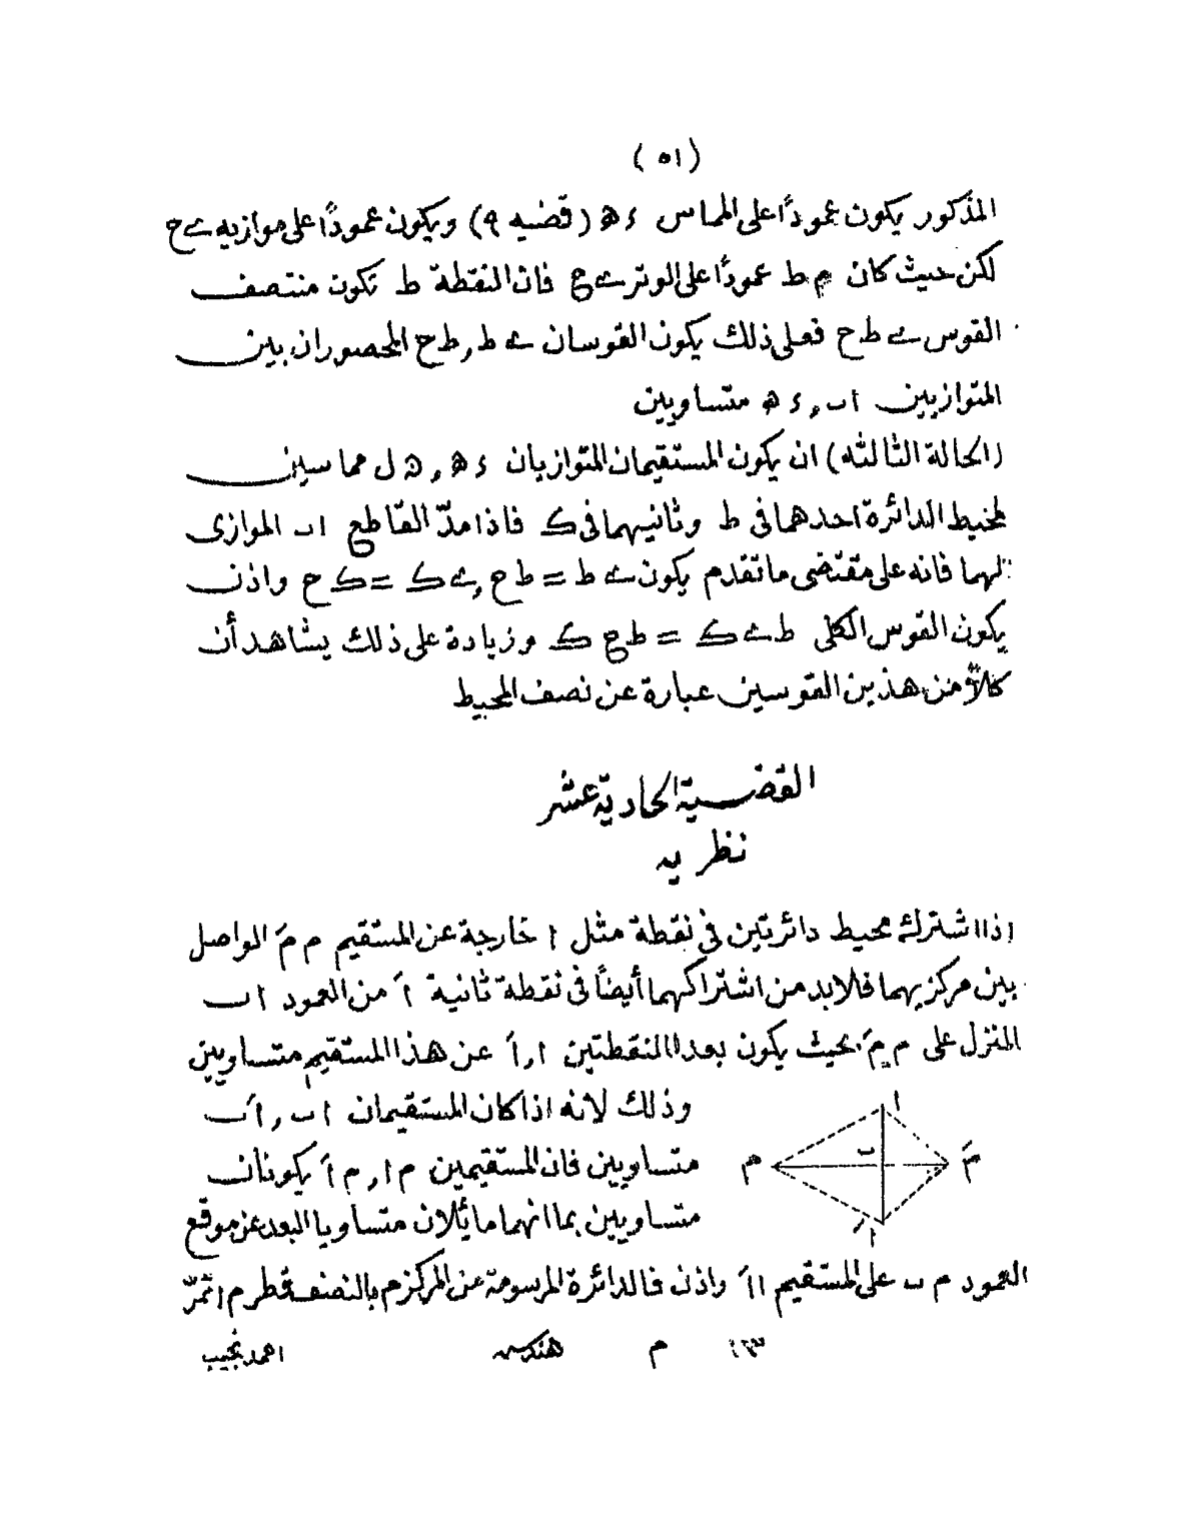 (٥١)
المذكور يكون عموداً على المماس ء ه (قضيه ٩) ويكون عموداً على موازيه ے ح
لكن حيث كان م ط عموداً على الوتر ے ح فان النقطة ط تكون منتصف
القوس ے ط ح فعلى ذلك يكون القوسان ے ط , ط ح المحصوران بين
المتوازيين ا ب , ء ه متساويين
(الحالة الثالثه) ان يكون المستقيمان المتوازيان ء ه , ه ل مماسين
لمحيط الدائرة احدهما فى ط وثانيهما فى ك فاذا مدّ القاطع ا ب الموازى
لهما فانه على مقتضى ما تقدم يكون ے ط = ط ح , ے ك = ك ح واذن
يكون القوس الكلى ط ے ك = ط ح ك وزيادة على ذلك يشاهد أن
كلاّ من هذين القوسين عبارة عن نصف المحيط
القضية الحادية عشر
نظريه
اذا اشترك محيط دائرتين فى نقطة مثل ا خارجة عن المستقيم م مَ الواصل
بين مركزيهما فلابد من اشتراكهما أيضاً فى نقطة ثانية اَ من العمود ا ب
المنزل على م مَ بحيث يكون بعدا النقطتين ا , اَ عن هذا المستقيم متساويين
وذلك لانه اذا كان المستقيمان ا ب , اَ ب
متساويين فان المستقيمين م ا , م اَ يكونان
متساويين بما انهما مائلان متساويا البعد عن موقع
العمود م ب على المستقيم ا اَ واذن فالدائرة المرسومة عن المركز م بالنصف قطر م ا تمرّ
ا
ب
م
مَ
اَ
م هندسه احمد نجيب